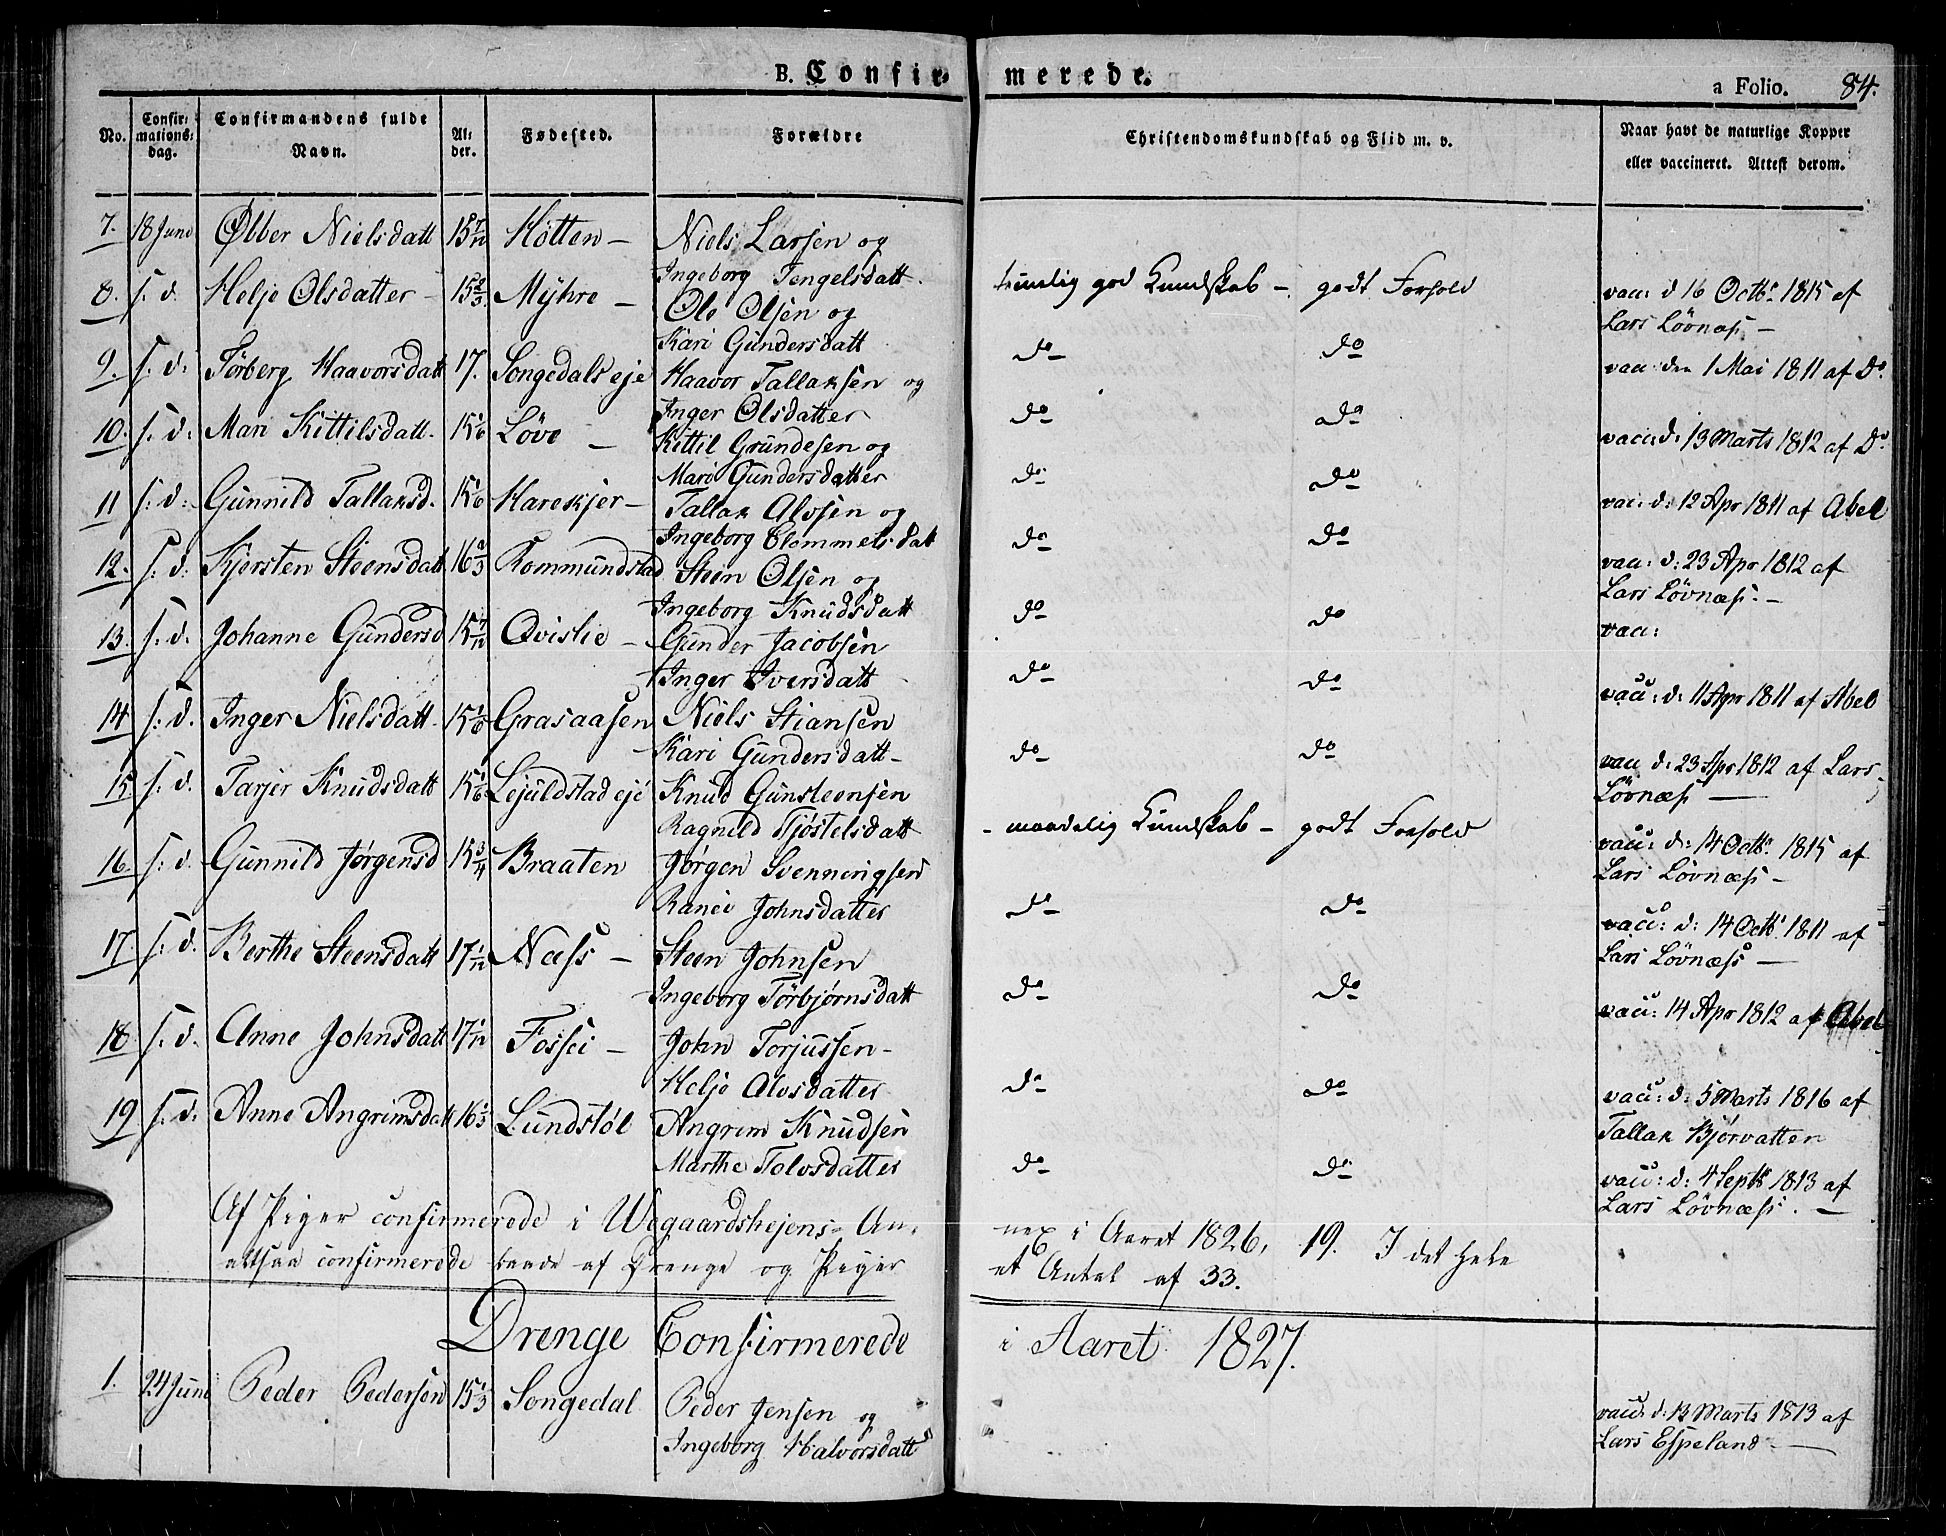 B. Confir-
merede.
a Folio. 84.
No.
Confir-
mations-
dag.
Confirmandens fulde
Navn.
Al-
der.
Fødested.
Forældre
Christendomskundskab og Flid m. v.
Naar havt de naturlige Kopper
eller vaccineret. Attest derom.
7. 18 Juni Øbber Nielsdatt 15 7/12 Hotten - Niels Larsen og
Ingeborg Tengelsdatt. timelig god Kundskab - godt Forhold vac: d 16 Octbr 1815 af
Lars Løvnæs -
8. s. d. Helje Olsdatter - 15 2/3. Myhre - Ole Olsen og
Kari Gundersdatt do do vac: den 1 Mai 1811 af Do.
9. s. d: Torberg Haavorsdatt 17. Songedals eje Haavor Tallaksen og
Inger Olsdatter do do vacc: d: 13 Marts 1812 af Do
10. s. d: Mari Kittilsdatt. 15 1/6 Løve - Kittil Grundesen og
Mari Gundersdatter do do vac: d: 12 Apr 1811 af Abel
11 s: d: Gunnild Tallaksd. 15 1/6 Harekjer - Tallak Alvsen og
Ingeborg Clemmetsdatt do do vac: d: 23 Apr 1812 af
Lars Løvnæs. -
12. s. d: Kjersten Steensdatt 16 2/3 Rommundstad Steen Olsen og
Ingeborg Knudsdatt do do vac:
13. s. d. Johanne Gundersd 15 7/12 Qvislie - Gunder Jacobsen
Inger Iversdatt do do vac: d: 11 Apr 1811 af Abel
14 s: d. Inger Nielsdatt. 15 1/6 Grasaasen Niels Stiansen
Kari Gundersdatt - do do vac d: 23 Apr 1812 af Lars
Løvnæs -
15 s: d. Tarjer Knudsdatt 15 1/6 Lejuldstad eje Knud Gunsteensen
Ragnild Tjøstelsdatt - maadelig Kundskab - godt Forhold vac: d: 14 Octb. 1815 af
Lars Løvnæs -
16. s: d. Gunnild Jørgensd 15 3/4 Braaten Jørgen Svenningsen
Ranei Johnsdatter do do vac: d: 14 Octb 1811 af
Lars Løvnæs -
17. s: d. Berthe Steensdatt 17 1/12 Næss - Steen Johnsen
Ingeborg Torbjørnsdatt do do vac: 14 Apr 1812 af Abel
18 s. d. Anne Johnsdatt 17 1/12 Fossei - John Torjussen -
Helje Alvsdatter do do vac: d: 5 Marts 1816 af
Tallak Bjørvatten
19 s: d: Anne Angrimsdatt 16 1/3 Lundstøl Angrim Knudsen
Marthe Tolvsdatter do do vac: d: 4 Septb 1813 af
Lars Løvnæs. -
Af Piger confirmerede i Wegaardshejens An-
nex i Aaret 1826, 19. I det hele
altsaa confirmerede baade af Drenge og Piger
et Antal af 33.
Drenge Confirmerede
i Aaret 1827.
1. 24 Juni Peder Pedersen 15 1/3 Songedal Peder Jensen og
Ingeborg Halvorsdatt vac: d: 13 Marts 1813 af
Lars Espeland -